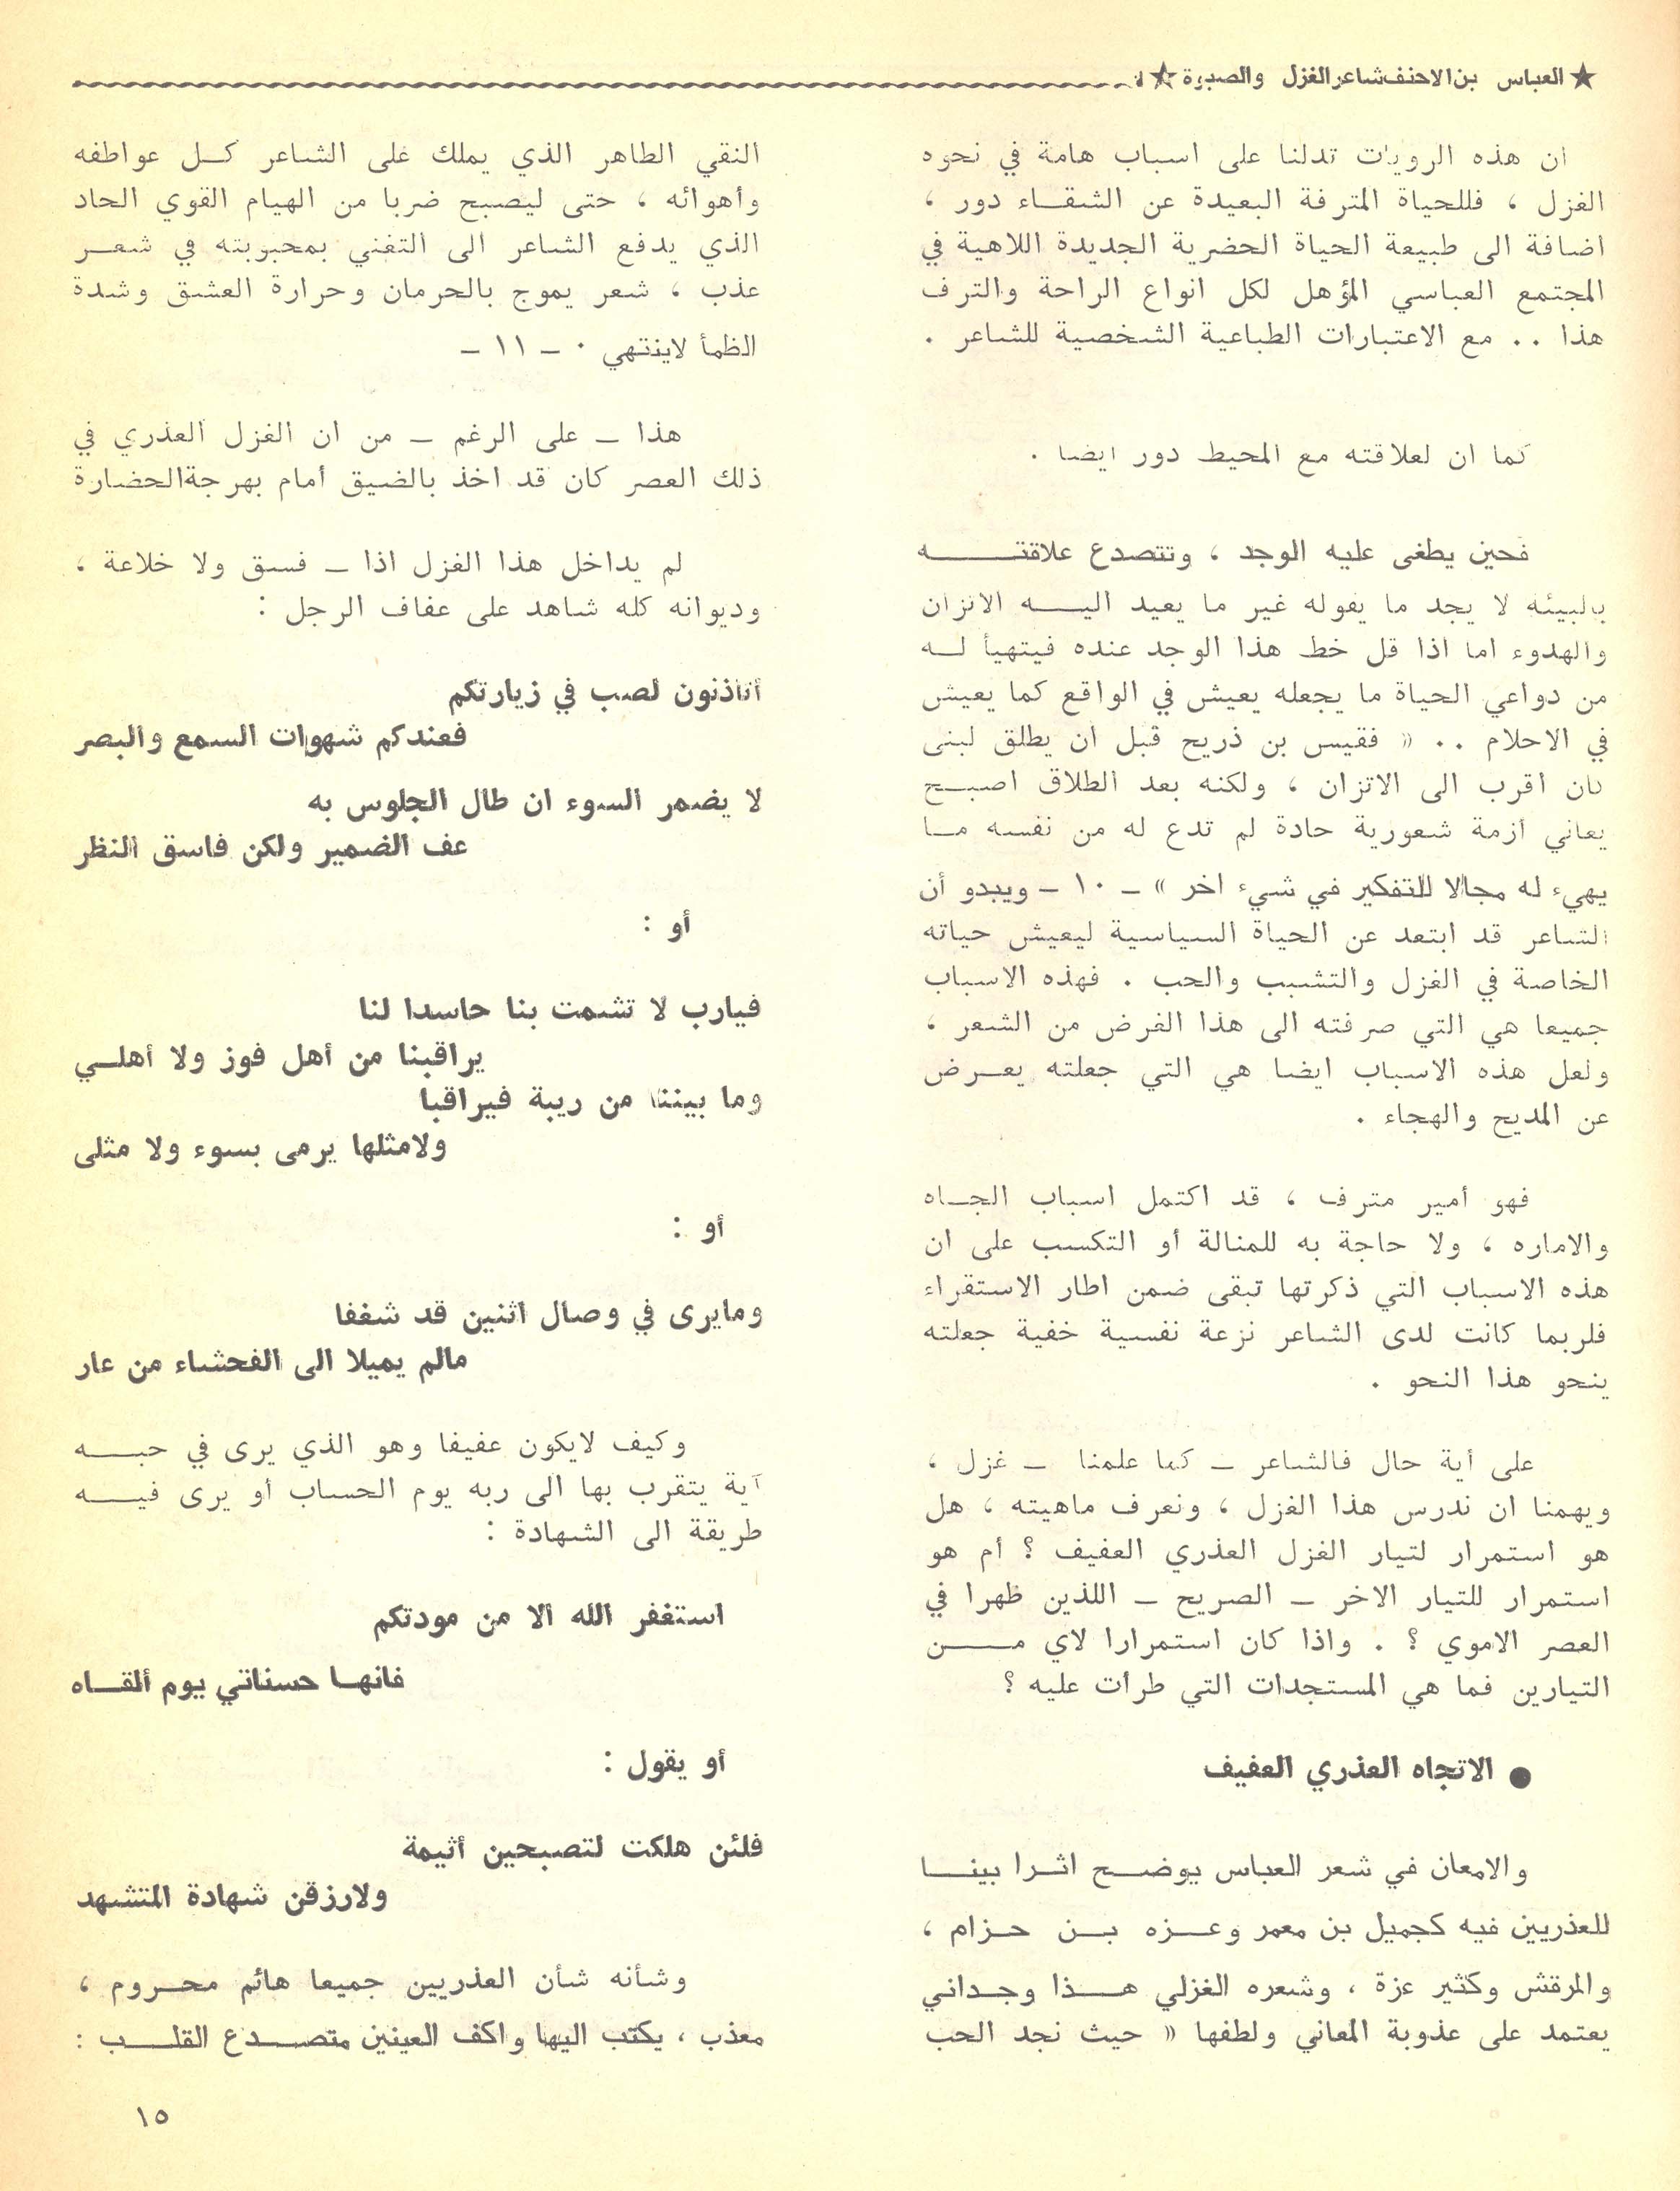 ★ العباس بن الاحنف شاعر الغزل والصبوة ★
ان هذه الرويات تدلنا على اسباب هامة في نحوه
الغزل ، فللحياة المترفة البعيدة عن الشقاء دور ،
اضافة الى طبيعة الحياة الحضرية الجديدة اللاهية في
المجتمع العباسي المؤهل لكل انواع الراحة والترف
هذا ٠٠ مع الاعتبارات الطباعية الشخصية للشاعر ٠
كما ان لعلاقته مع المحيط دور ايضا ٠
فحين يطغى عليه الوجد ، وتتصدع علاقته
بالبيئة لا يجد ما يقوله غير ما يعيد اليه الاتزان
والهدوء اما اذا قل خط هذا الوجد عنده فيتهيأ له
من دواعي الحياة ما يجعله يعيش في الواقع كما يعيش
في الاحلام ٠٠ « فقيس بن ذريح قبل ان يطلق لبنى
كان اقرب الى الاتزان ، ولكنه بعد الطلاق اصبح
يعاني ازمة شعورية حادة لم تدع له من نفسه ما
يهيء له مجالا للتفكير في شيء اخر » ـ ١٠ ـ ويبدو أن
الشاعر قد ابتعد عن الحياة السياسية ليعيش حياته
الخاصة في الغزل والتشبب والحب ٠ فهذه الاسباب
جميعا هي التي صرفته الى هذا الغرض من الشعر ،
ولعل هذه الاسباب ايضا هي التي جعلته يعرض
عن المديح والهجاء ٠
فهو أمير مترف ، قد اكتمل اسباب الجاه
والاماره ، ولا حاجة به للمنالة أو التكسب على ان
هذه الاسباب التي ذكرتها تبقى ضمن اطار الاستقراء
فلربما كانت لدى الشاعر نزعة نفسية خفية جعلته
ينحو هذا النحو ٠
على أية حال فالشاعر ـ كما علمنا ـ غزل ،
ويهمنا ان ندرس هذا الغزل ، ونعرف ماهيته ، هل
هو استمرار لتيار الغزل العذري العفيف ؟ أم هو
استمرار للتيار الاخر ـ الصريح ـ اللذين ظهرا في
العصر الاموي ؟ ٠ واذا كان استمرارا لاي من
التيارين فما هي المستجدات التي طرأت عليه ؟
● الاتجاه العذري العفيف
والامعان في شعر العباس يوضح اثرا بينا
للعذريين فيه كجميل بن معمر وعزه بن حزام ،
والمرقش وكثير عزة ، وشعره الغزلي هذا وجداني
يعتمد على عذوبة المعاني ولطفها « حيث نجد الحب
النقي الطاهر الذي يملك على الشاعر كل عواطفه
وأهوائه ، حتى ليصبح ضربا من الهيام القوي الحاد
الذي يدفع الشاعر الى التغني بمحبوبته في شعر
عذب ، شعر يموج بالحرمان وحرارة العشق وشدة
الظمأ لاينتهي ٠ ـ ١١ ـ
هذا ـ على الرغم ـ من ان الغزل العذري في
ذلك العصر كان قد اخذ بالضيق أمام بهرجة الحضارة
لم يداخل هذا الغزل اذا ـ فسق ولا خلاعة ،
وديوانه كله شاهد على عفاف الرجل :
أتاذنون لصب في زيارتكم
فعندكم شهوات السمع والبصر
لا يضمر السوء ان طال الجلوس به
عف الضمير ولكن فاسق النظر
أو :
فيارب لا تشمت بنا حاسدا لنا
يراقبنا من أهل فوز ولا أهلي
وما بيننا من ريبة فيراقبا
ولامثلها يرمى بسوء ولا مثلى
أو :
ومايرى في وصال اثنين قد شغفا
مالم يميلا الى الفحشاء من عار
وكيف لايكون عفيفا وهو الذي يرى في حبه
آية يتقرب بها الى ربه يوم الحساب أو يرى فيه
طريقة الى الشهادة :
استغفر الله الا من مودتكم
فانها حسناتي يوم ألقاه
أو يقول :
فلئن هلكت لتصبحين أثيمة
ولارزقن شهادة المتشهد
وشأنه شأن العذريين جميعا هائم محروم ،
معذب ، يكتب اليها واكف العينين متصدع القلب :
١٥